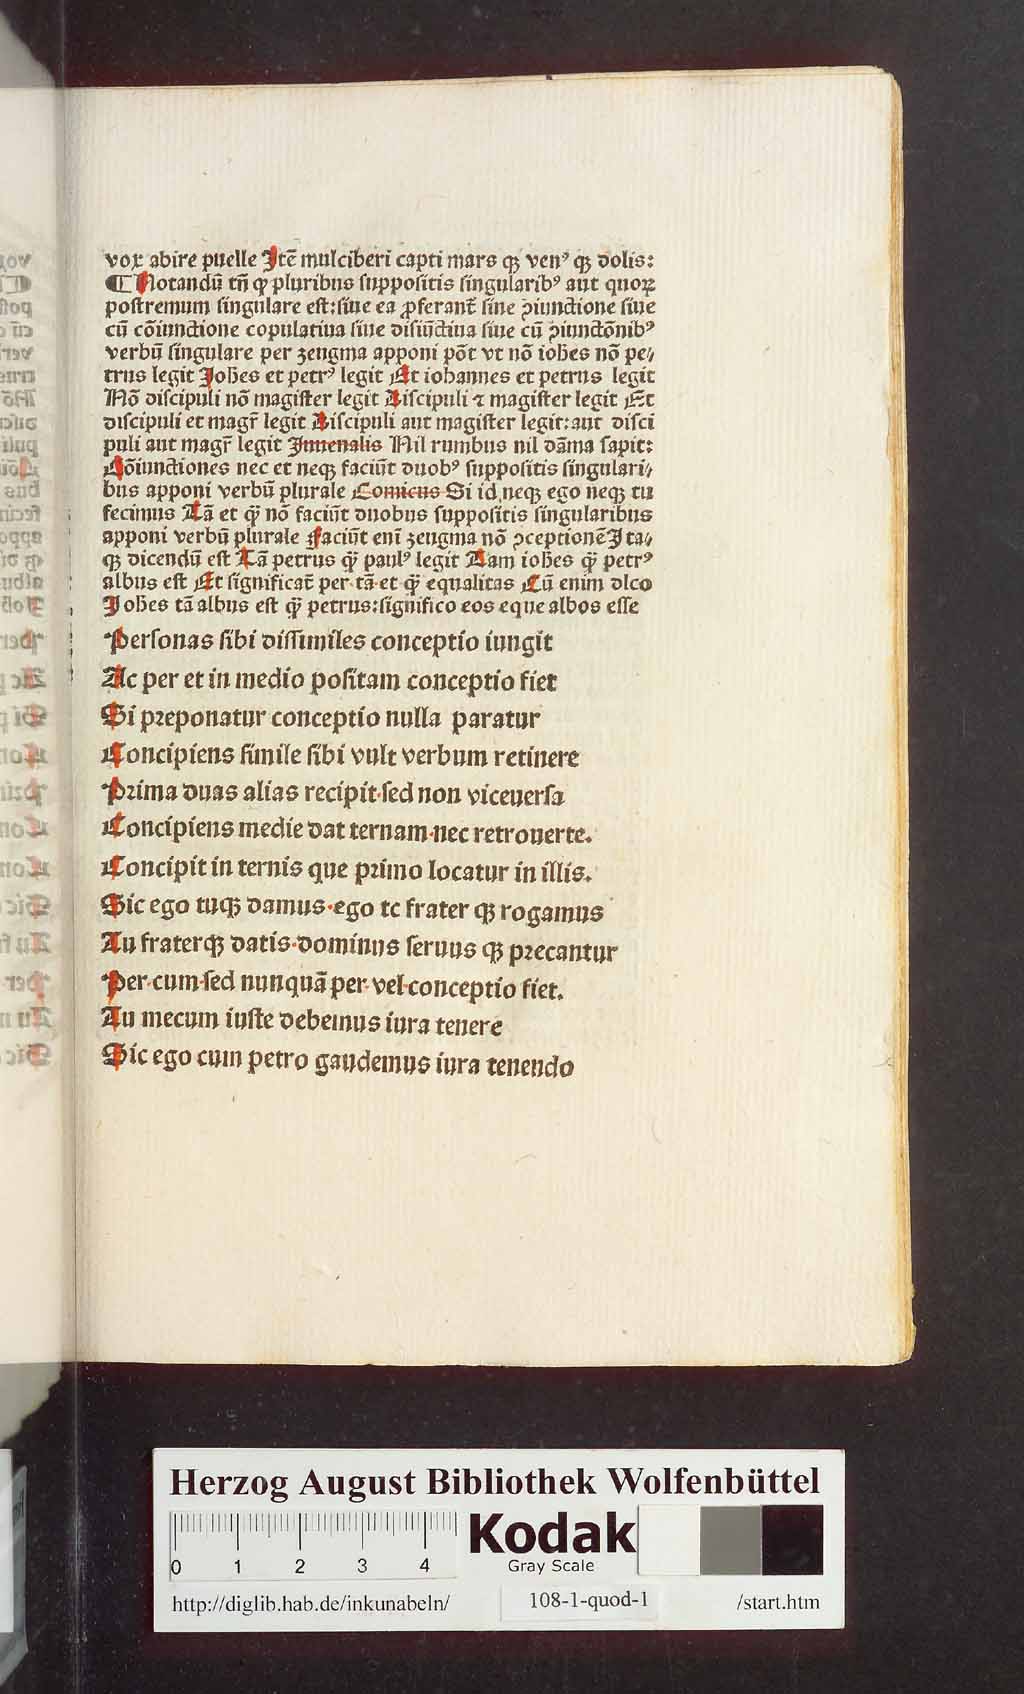 vox abire puelle Itē mulciberi capti mars qꝫ venꝰ qꝫ dolis:
¶ Notandū tn̄ ꝙ pluribus suppositis singularibꝰ aut quoꝝ
postremum singulare est: siue ea ꝓferant̄ sine ꝯiunctione siue
cū cōiunctione copulatiua siue disiūctiua siue cū ꝯiunctōnibꝰ
verbū singulare per zeugma apponi pōt vt nō ioh̄es nō pe⸗
trus legit Joh̄es et petrꝰ legit Et iohannes et petrus legit
Nō discipuli nō magister legit Discipuli ⁊ magister legit Et
discipuli et magr̄ legit Discipuli aut magister legit: aut disci
puli aut magr̄ legit Juuenalis Nil rumbus nil dāma sapit:
Cōiunctiones nec et neqꝫ faciūt duobꝰ suppositis singulari⸗
bus apponi verbū plurale Comicus Si id neqꝫ ego neqꝫ tu
fecimus Tā et ꝙ̄ nō faciūt duobus suppositis singularibus
apponi verbū plurale Faciūt enī zeugma nō ꝯceptionē Ita⸗
qꝫ dicendū est Tā petrus ꝙ̄ paulꝰ legit Nam ioh̄es ꝙ̄ petrꝰ
albus est Et significat̄ per tā et ꝙ̄ equalitas Cū enim dico
Joh̄es tā albus est ꝙ̄ petrus: significo eos eque albos esse
Personas sibi dissimiles conceptio iungit
Ac per et in medio positam conceptio fiet
Si preponatur conceptio nulla paratur
Concipiens simile sibi vult verbum retinere
Prima duas alias recipit·sed non viceuersa
Concipiens medie dat ternam·nec retrouerte.
Concipit in ternis que primo locatur in illis.
Sic ego tuqꝫ damus·ego te frater qꝫ rogamus
Tu fraterqꝫ datis·dominus seruus qꝫ precantur
Per·cum·sed nunquā per·vel·conceptio fiet.
Tu mecum iuste debemus iura tenere
Sic ego cum petro gaudemus iura tenendo
Herzog August Bibliothek Wolfenbüttel
0 1 2 3 4
Kodak
Gray Scale
http://diglib.hab.de/inkunabeln/ 108-1-quod-1 /start.htm